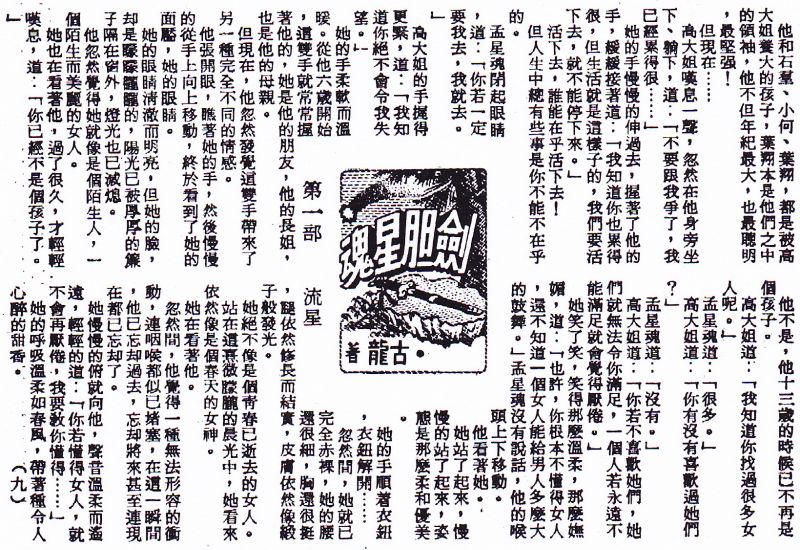 劍胆星魂
古龍 著
第一部 流星
他和石羣、小何、葉翔，都是被高
大姐養大的孩子，葉翔本是他們之中
的領袖，他不但年紀最大，也最聰明
，最堅强！
但現在……
高大姐嘆息一聲，忽然在他身旁坐
下、躺下，道：「不要跟我爭了，我
已經累得很……」
她的手慢慢的伸過去，握着了他的
手，緩緩接著道：「我知道你也累得
很，但生活就是這樣子的，我們要活
下去，就不能停下來。」
活下去，誰能在乎活下去！
但人生中總有些事是你不能不在乎
的。
孟星魂閉起眼睛
，道：「你若一定
要我去，我就去。
」
高大姐的手握得
更緊，道：「我知
道你絕不會令我失
望。」
她的手柔軟而溫
暖。從他六歲開始
，這雙手就常常握
著他的，她是他的朋友，他的長姐，
也是他的母親。
但現在，他忽然發覺這雙手帶來了
另一種完全不同的情感。
他張開眼，瞧著她的手，然後慢慢
的從手上向上移動，終於看到了她的
面龐，她的眼睛。
她的眼睛清澈而明亮，但她的臉，
却是矇矇矓矓的，陽光已被厚厚的簾
子隔在窗外，燈光也已滅熄。
他忽然覺得她就像是個陌生人，一
個陌生而美麗的女人。
她也在看著他，過了很久，才輕輕
嘆息，道：「你已經不是個孩子了。
」
他不是，他十三歲的時候已不再是
個孩子。
高大姐道：「我知道你找過很多女
人呢。」
孟星魂道：「很多。」
高大姐道：「你有沒有喜歡過她們
？」
孟星魂道：「沒有。」
高大姐道：「你若不喜歡她們，她
們就無法令你滿足，一個人若永遠不
能滿足就會覺得厭倦。」
她笑了笑，笑得那麼溫柔，那麼嫵
媚，道：「也許，你根本不懂得女人
，還不知道一個女人能給男人多麼大
的鼓舞。」孟星魂沒有說話，他的喉
頭上下移動。
他看著她。
她站了起來，慢
慢的站了起來，姿
態是那麼柔和優美
。
她的手順着衣鈕
，衣鈕解開……
忽然間，她就已
完全赤裸，她的腰
還很細，胸還很挺
，腿依然修長而結實，皮膚依然像緞
子般發光。
她絕不像是個青春已逝去的女人。
站在這熹微朦朧的晨光中，她看來
依然像是個春天的女神。
她在看著他。
忽然間，他覺得一種無法形容的衝
動，連咽喉都似已堵塞，在這一瞬間
，他已忘却過去，忘却將來甚至連現
在都已忘却了。
她慢慢的俯就向他，聲音溫柔而遙
遠，輕輕的道：「你若懂得女人，就
不會再厭倦，我要教你懂得……」
她的呼吸溫柔如春風，帶著種令人
心醉的甜香。　（九）